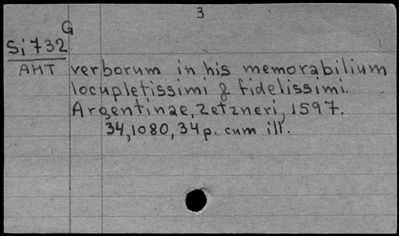 3
G
Si 732
AHT verborum in his memorabilium
locupletissimi & fidelissimi.
Argentinae, Zetzneri, 1597.
34,1080,34p. cum ill.